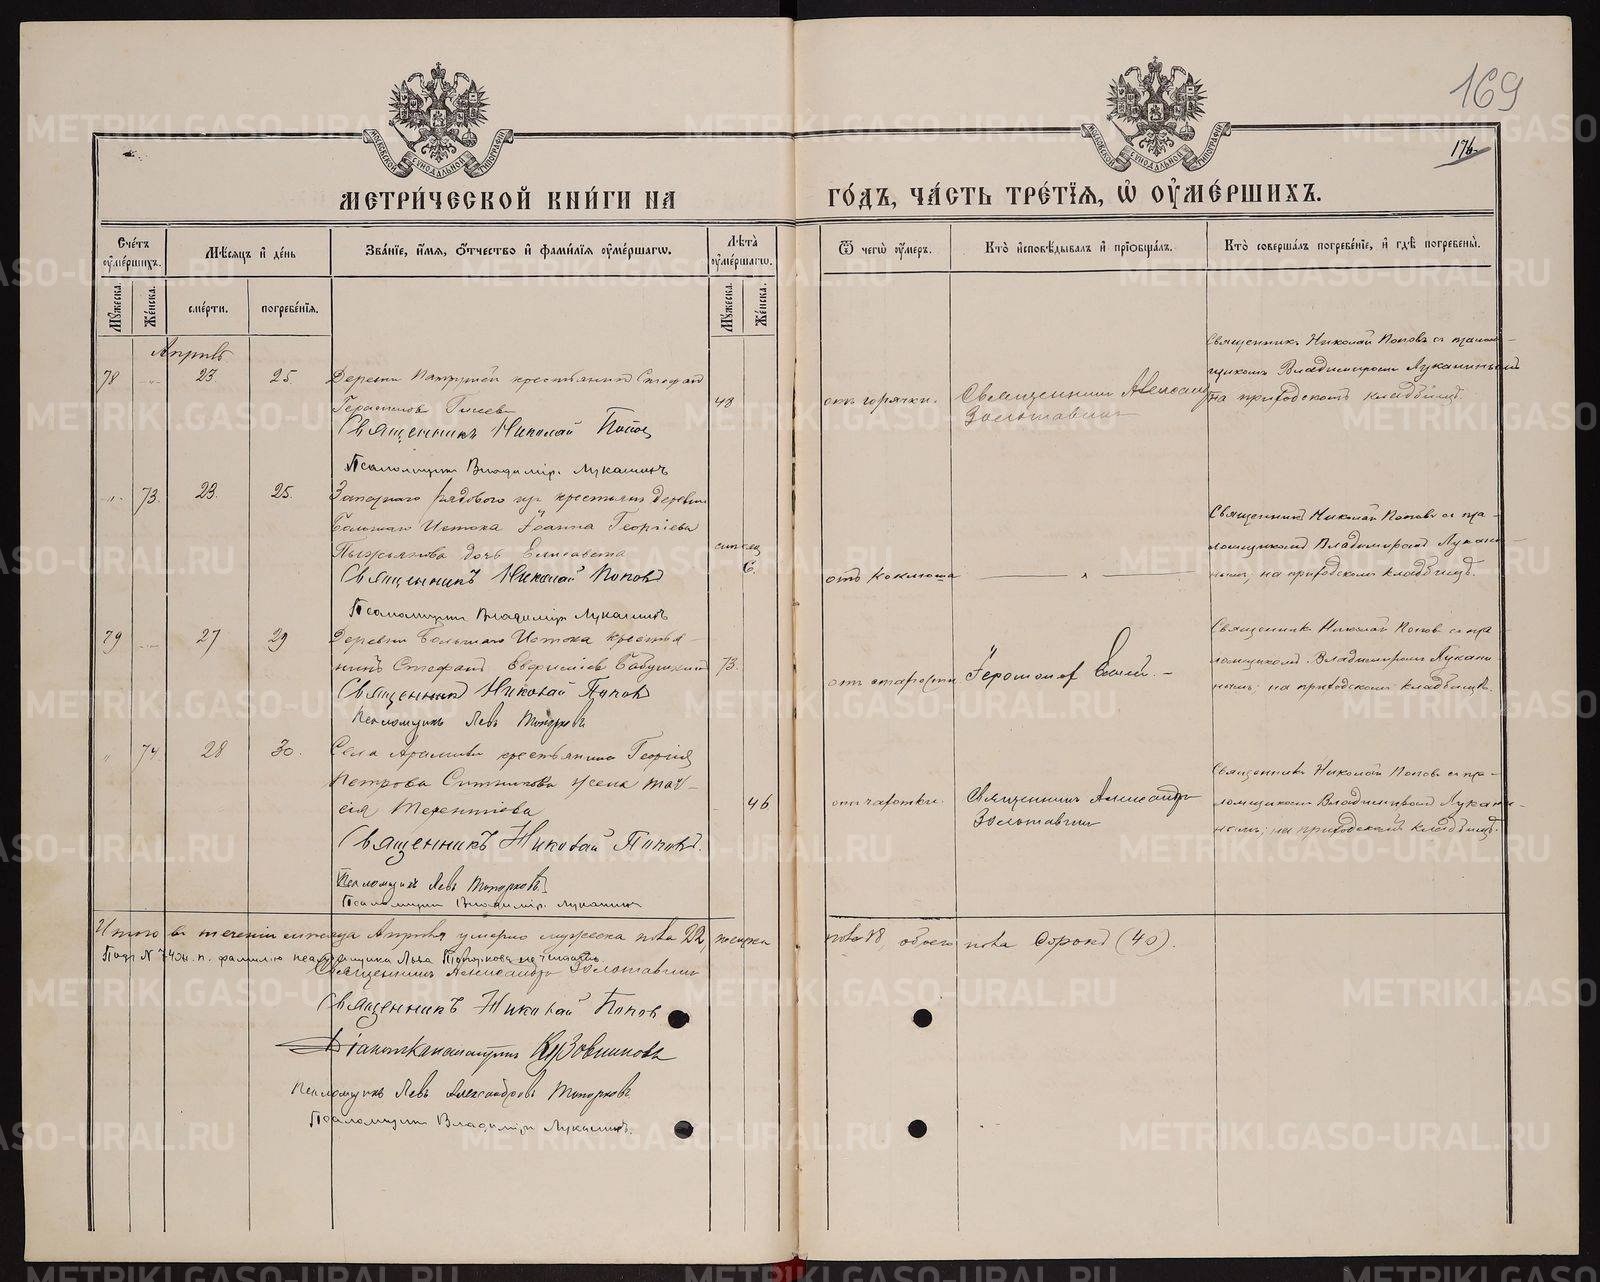 169
176.
МЕТРИ́ЧЕСКОЙ КНИ́ГИ НА
ГО́ДЪ, ЧА́СТЬ ТРЕ́ТЇѦ, Ѡ҆ ОУ҆МЕ́РШИХЪ.
Сче́тъ оу҆ме́ршихъ.
Мѣ́сяцъ и҆ де́нь
Зва́нїе, и҆́мѧ, ѻ҆́тчество и҆ фами́лїѧ оу҆ме́ршагѡ.
Лѣ́та оу҆ме́ршагѡ.
Ѿ чегѡ̀ оу҆́меръ.
Кто̀ и҆сповѣ́дывалъ и҆ прїѡбща́лъ.
Кто̀ соверша́лъ погребе́нїе, и҆ гдѣ̀ погребены̀.
Мꙋ́жеска.
Же́нска.
сме́рти.
погребе́нїѧ.
Мꙋ́жеска.
Же́нска.
Апрѣль
78 23. 25. Деревни Патрушей крестьянинъ Стефан
Герасимовъ 48
Священникъ Николай Попов
Псаломщикъ Владимір. Лукашинъ
отъ горячки. Священник Александр
Золотавин
Священникъ Николай Поповъ съ псалом-
щикомъ Владимиромъ
на приходскомъ кладбищѣ.
73. 23. 25. Запаснаго рядового из крестьян деревни
Большаго Истока Іоанна Георгіева
дочь Елисавета
6.
Священникъ Николай Поповъ
Псаломщик Владимір Лукашинъ
отъ коклюша
Священникъ Николай Поповъ съ пса-
ломщикомъ Владимиромъ Лукаши-
нымъ, на приходскомъ кладбищѣ.
79 27 29 Деревни Большаго Истока крестья-
нинъ Стефанъ Евфиміевъ Бабушкинъ 73.
Священникъ Николай Попов
Псаломщикъ Левъ Топорковъ
отъ старости Іеромонах
Священникъ Николай Поповъ съ пса-
ломщикомъ Владимиромъ Лукаши-
нымъ, на приходскомъ кладбищѣ.
74. 28 30. Села Арамили крестьянина Георгія
Петрова Ситникова жена Таи-
сія Терентіева 46
Священникъ Николай Поповъ.
Псаломщикъ Левъ Топорковъ
Псаломщик Владимір. Лукашин
отъ чахотки. Священник Александр
Золотавин
Священникъ Николай Поповъ съ пса-
ломщикомъ Владимиромъ Лукаши-
нымъ, на приходскомъ кладбищѣ.
Итого въ теченіи мѣсяца Апрѣля умерло мужеска пола 22, женска пола 18, обоего пола сорокъ (40).
Подъ № 74 ж. п. фамилію псаломщика Льва Топоркова не читать.
Священник Александр Золотавин
Священникъ Николай Попов
Псаломщикъ Левъ Александровъ Топорковъ
Псаломщик Владимір Лукашинъ.
METRIKI.GASO-URAL.RU